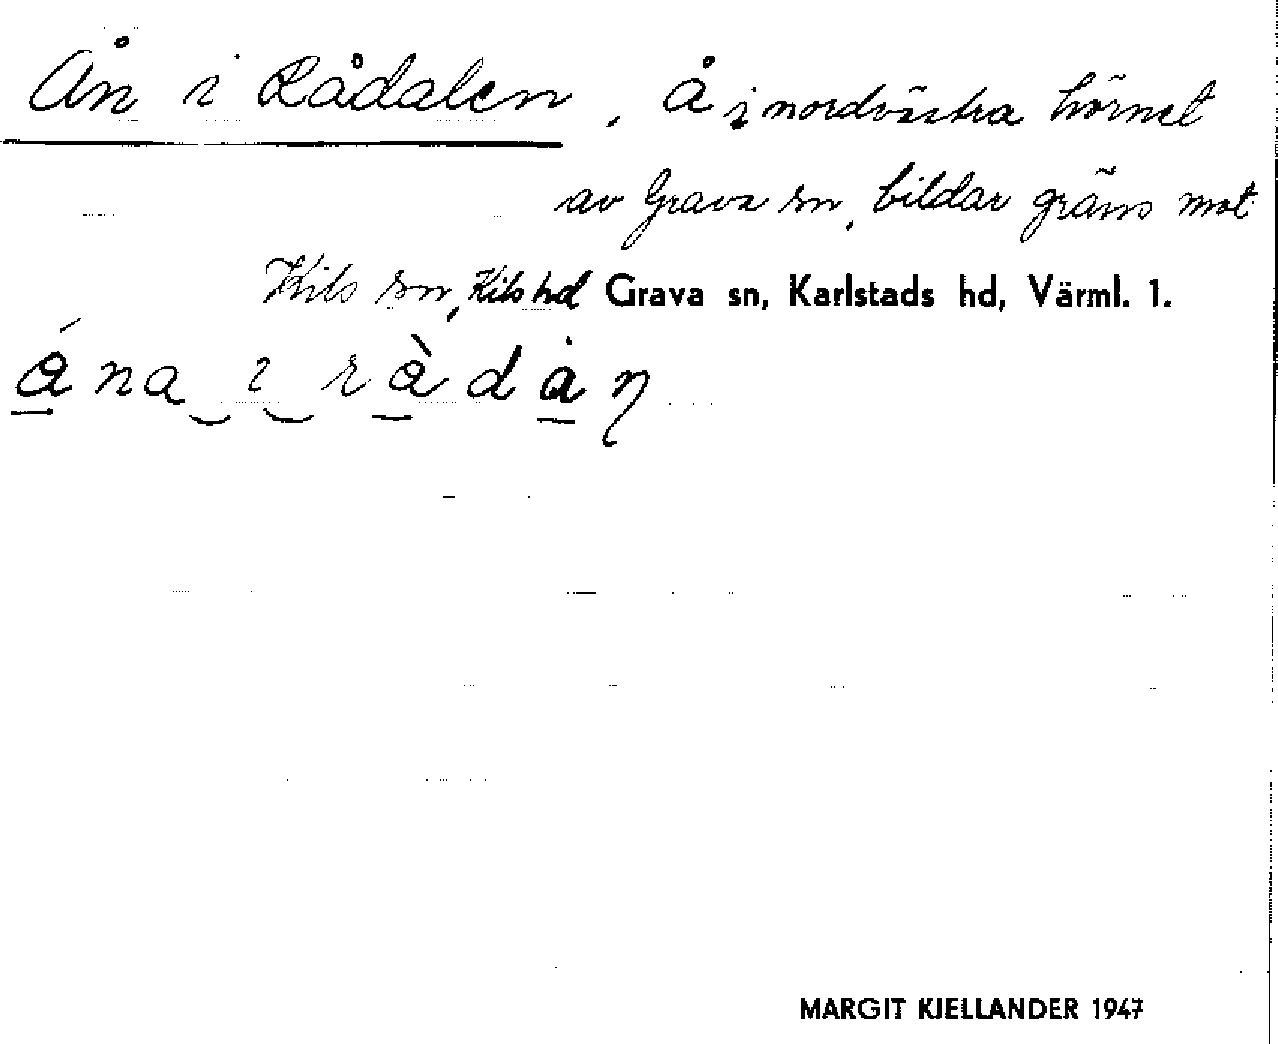 Ån i Rådalen, Å i nordvästra hörnet
av Grava sn, bildar gräns mot
Kils sn, Kils hd Grava sn, Karlstads hd, Värml. 1.
ǻna‿ı‿rå̀dȧ̀ŋ
MARGIT KJELLANDER 1947